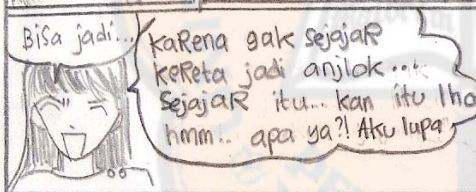 Bisa jadi...
kaRena gak sejajaR
keReta jadi anjlok....
sejajaR itu... kan itu lho
hmm... apa ya?! Aku lupa